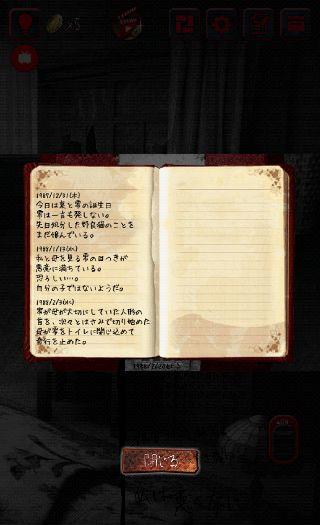 ×5
1987/12/31(木)
今日は葵と零の誕生日
零は一言も発しない。
先日処分した野良猫のことを
まだ恨んでいる。
1988/1/13(水)
私と母を見る零の目つきが
悪意に満ちている。
恐ろしい…。
自分の子ではないようだ。
1988/2/3(水)
零が母が大切にしていた人形の
首を、次々とはさみで切り始めた
母が零をトイレに閉じ込めて
奇行を止めた。
閉じる